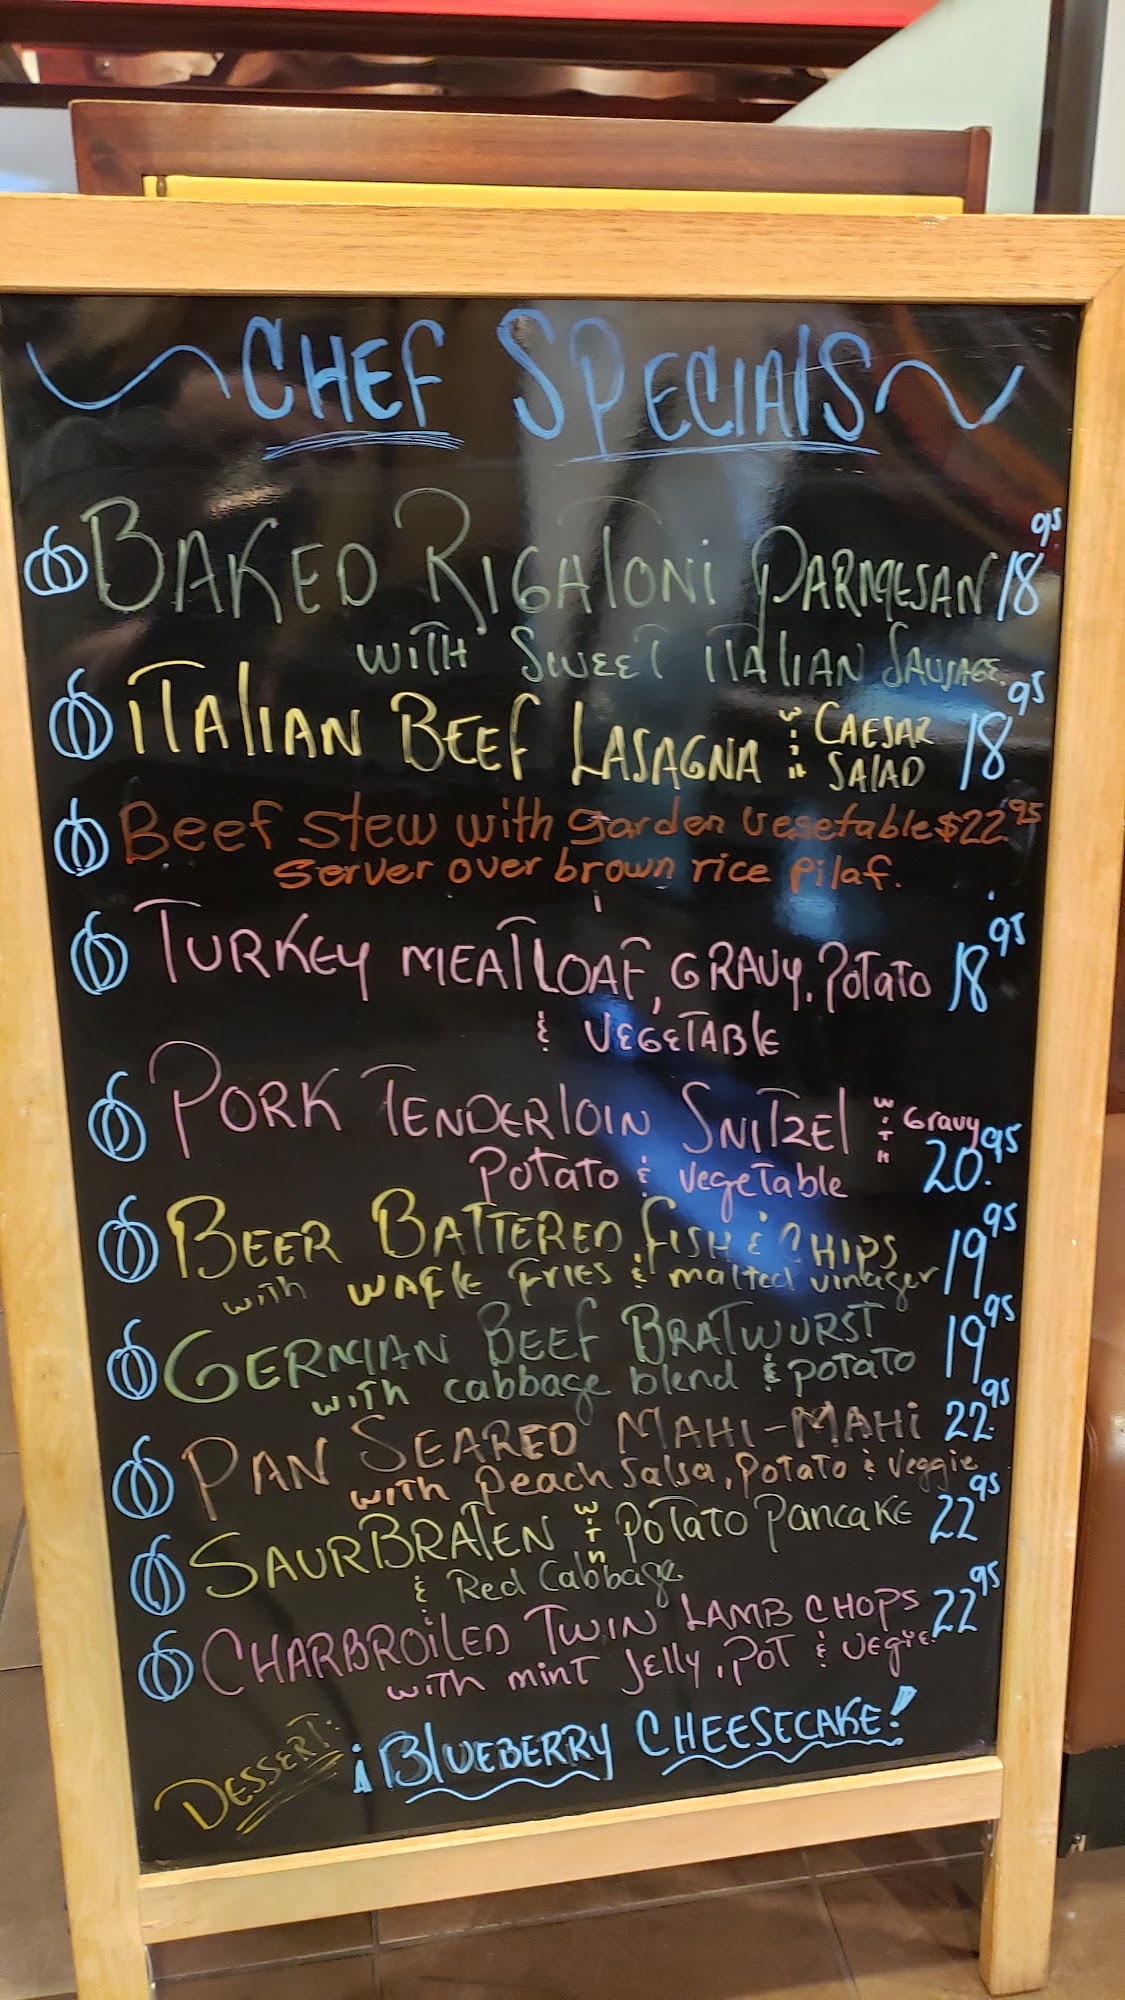 CHEF SPECIAlS
BAKED RIGATONi PARMESAN 18 95
WITH SWEET ITALIAN SAUSAGE
ITALIAN BEEF LASAGNA WITH CAESAR SALAD 18 95
Beef stew with garden vegetable $22.95
server over brown rice pilaf.
TURKEY MEATLOAF, GRAVY, POTATO 18 95
& VEGETABLE
PORK TENDERLOIN SNITZEL WITH Gravy
POTATO & vegeTable 20.95
BEER BATTERED FISH & CHIPS 19 95
with WAFLE FRIES & malted vinager
GERMAN BEEF BRATWURST 19 95
with cabbage blend & POTATO
PAN SEARED MAHI-MAHi 22.95
with peach salsa, Potato & Veggie
SAURBRATEN WITH POTATO PANCAKE 22 95
& Red Cabbage
CHARBROiLED TWIN LAMB CHOPS 22 95
with mint Jelly, POT & Vegie.
DESSERT: ¡BLUEBERRY CHEESECAKE!